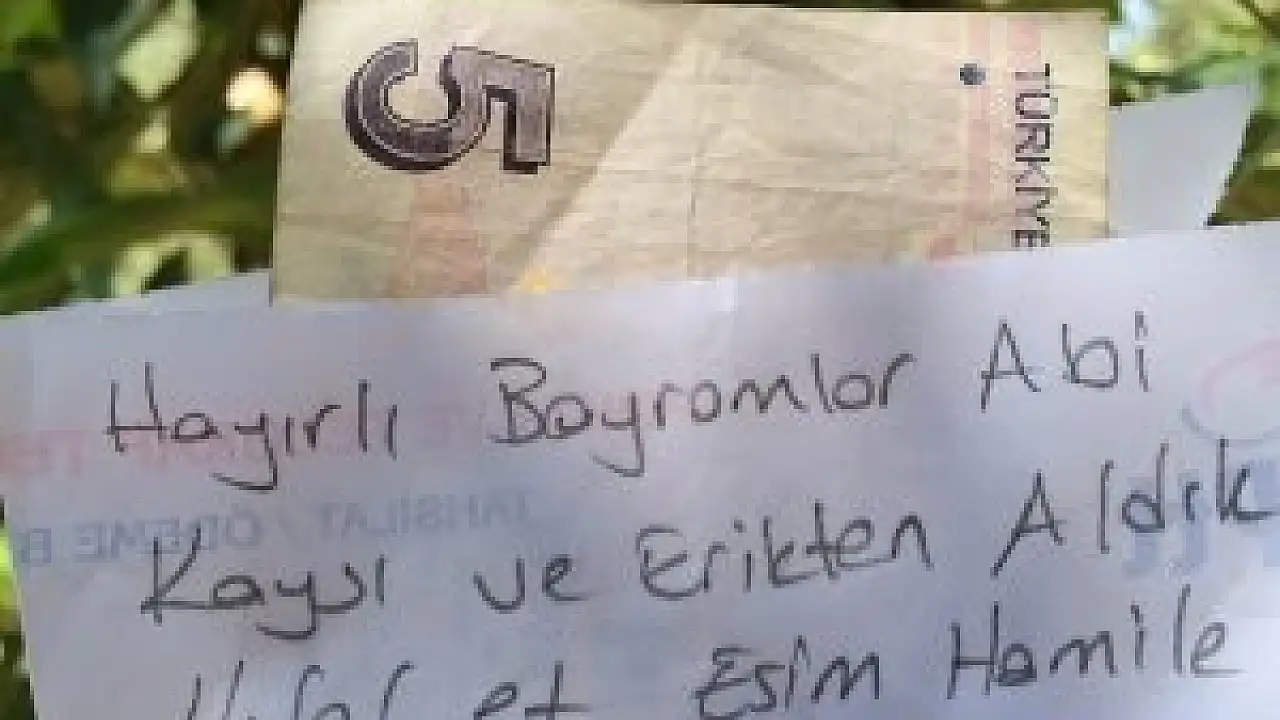 5
TÜRKİYE
Hayırlı Bayramlar Abi
TAHSİLAT / ÖDEME B
Kaysı ve Erikten Aldık
et Eşim Hamile